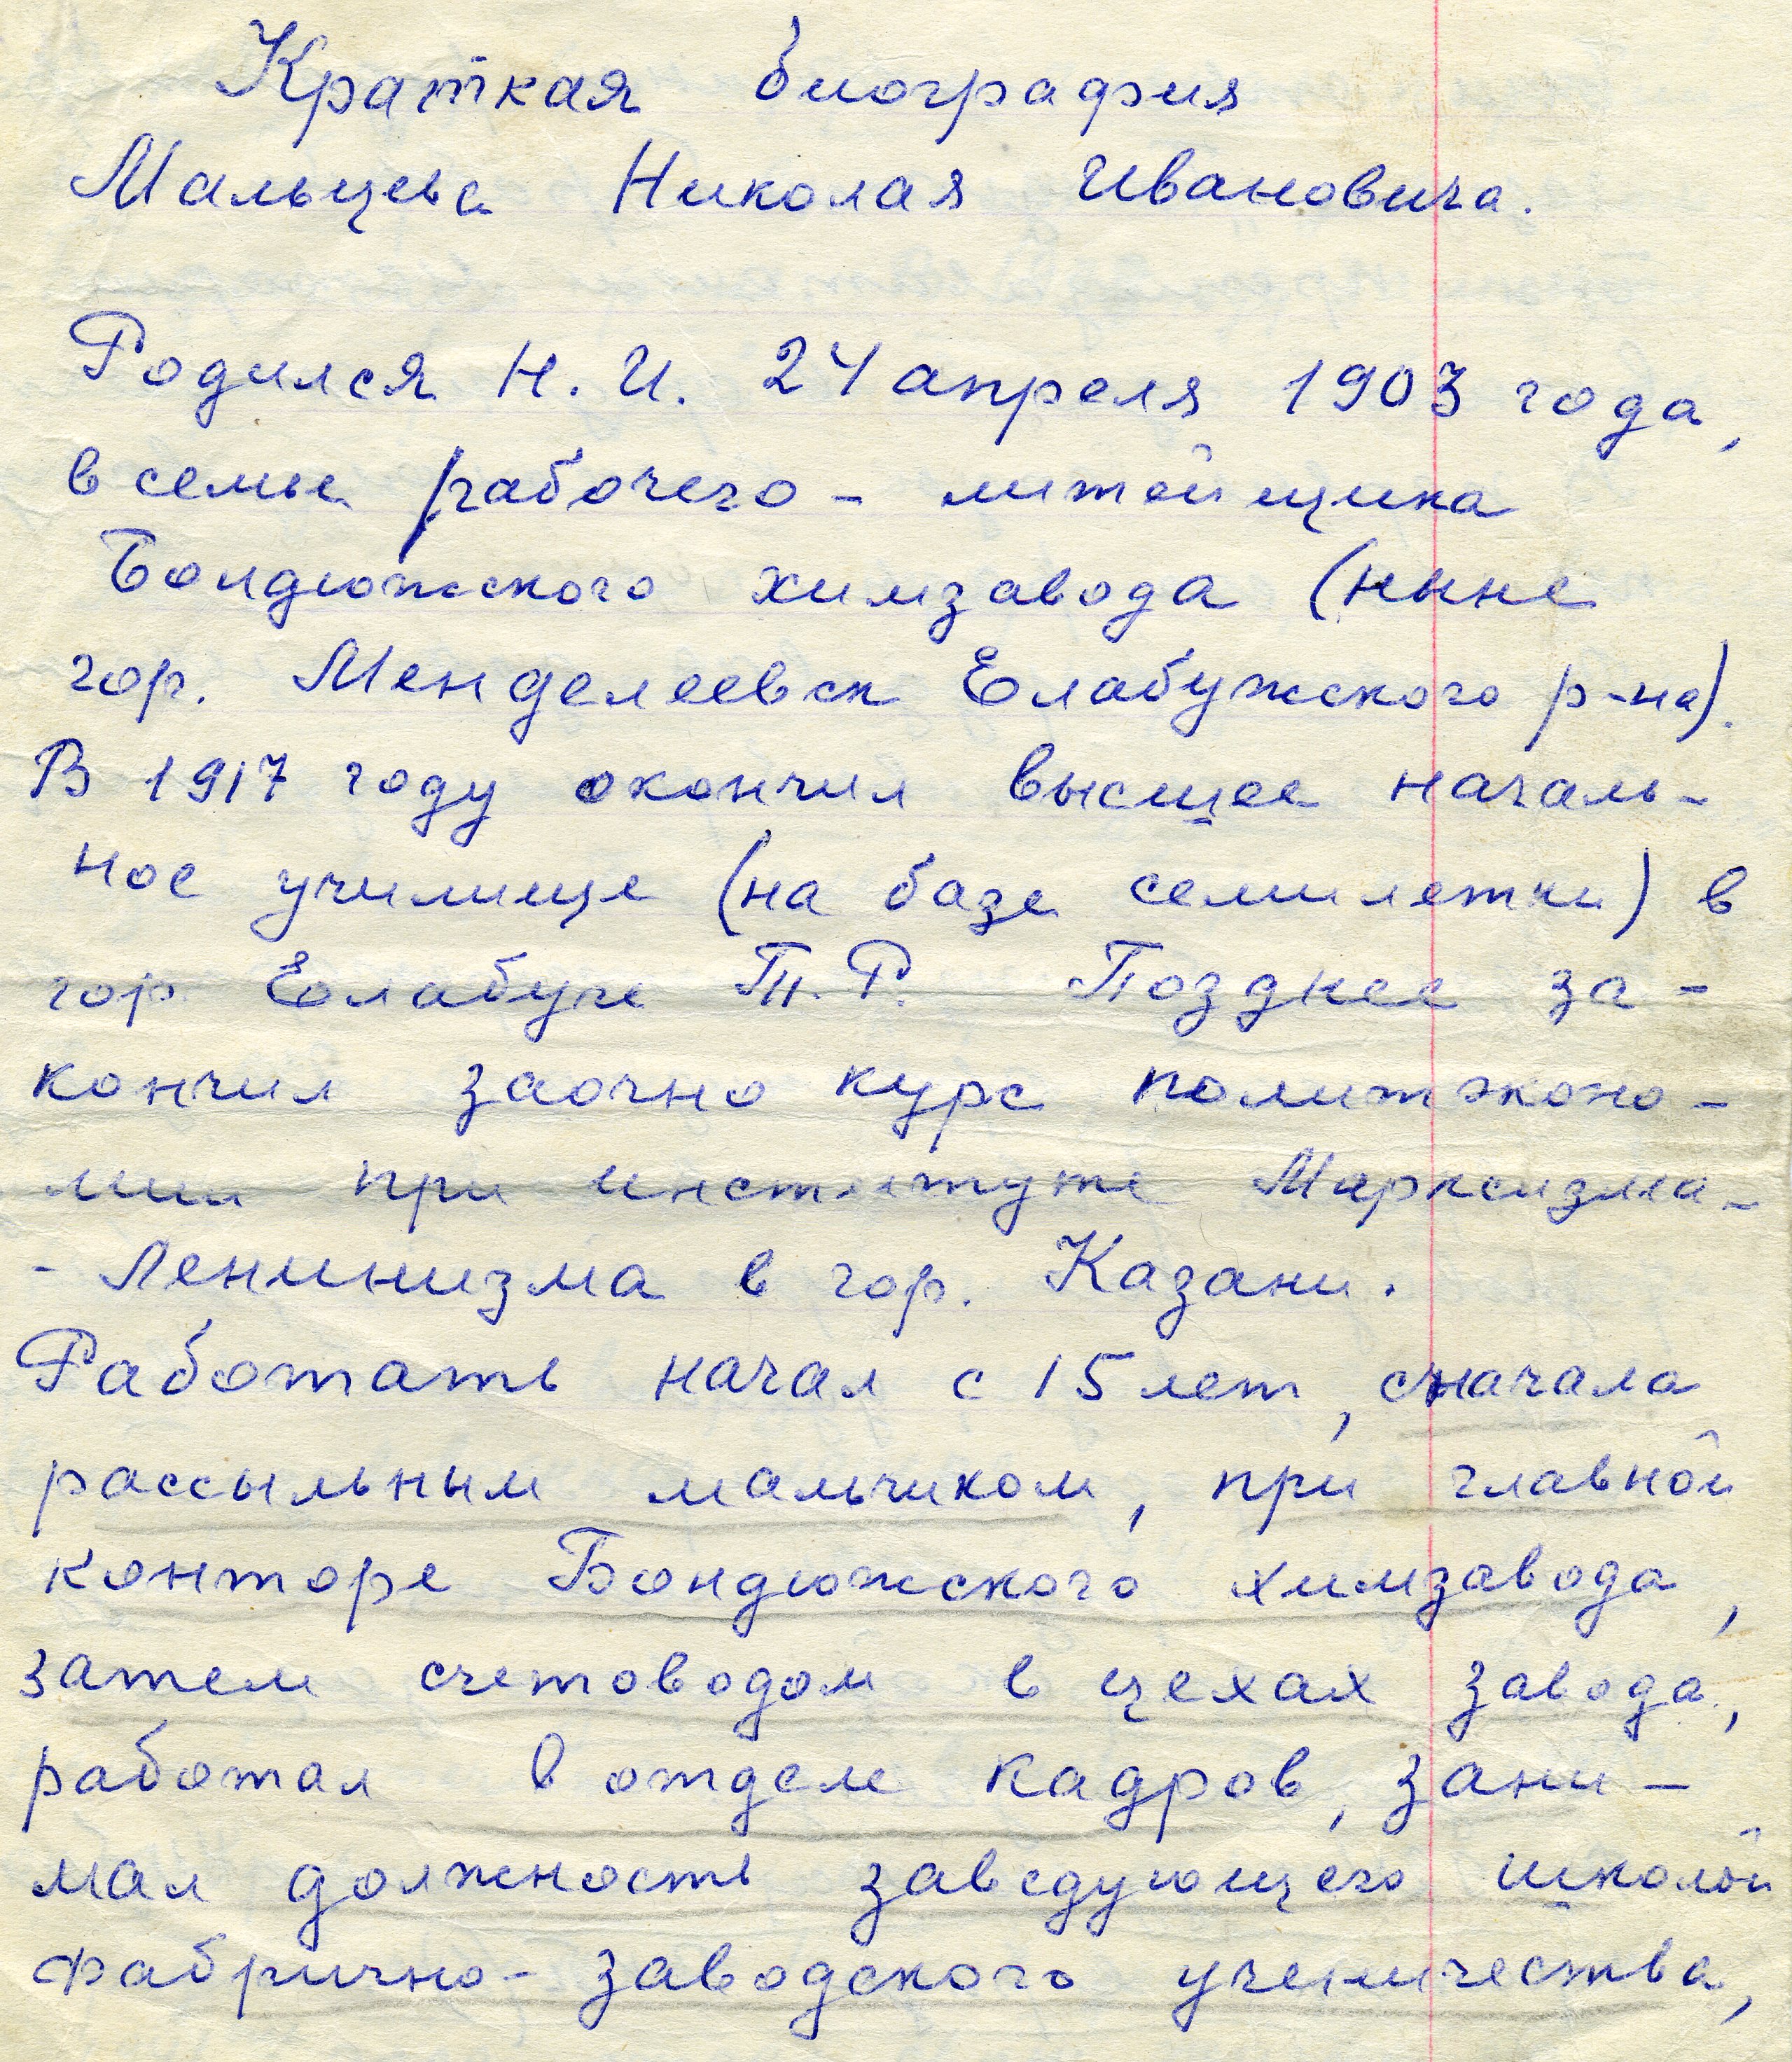 Краткая биография
Мальцева Николая Ивановича.
Родился Н. И. 24 апреля 1903 года,
в семье рабочего - литейщика
Бондюжского химзавода (ныне
гор. Менделеевск Елабужского р-на).
В 1917 году окончил высшее началь-
ное училище (на базе семилетки) в
гор Елабуге Т.Р. Позднее за-
кончил заочно курс политэконо-
мии при институте Марксизма-
- Ленинизма в гор. Казани.
Работать начал с 15 лет, сначала
рассыльным мальчиком, при главной
конторе Бондюжского химзавода,
затем счетоводом в цехах завода,
работал в отделе кадров, зани-
мал должность заведующего школой
фабрично-заводского ученичества,